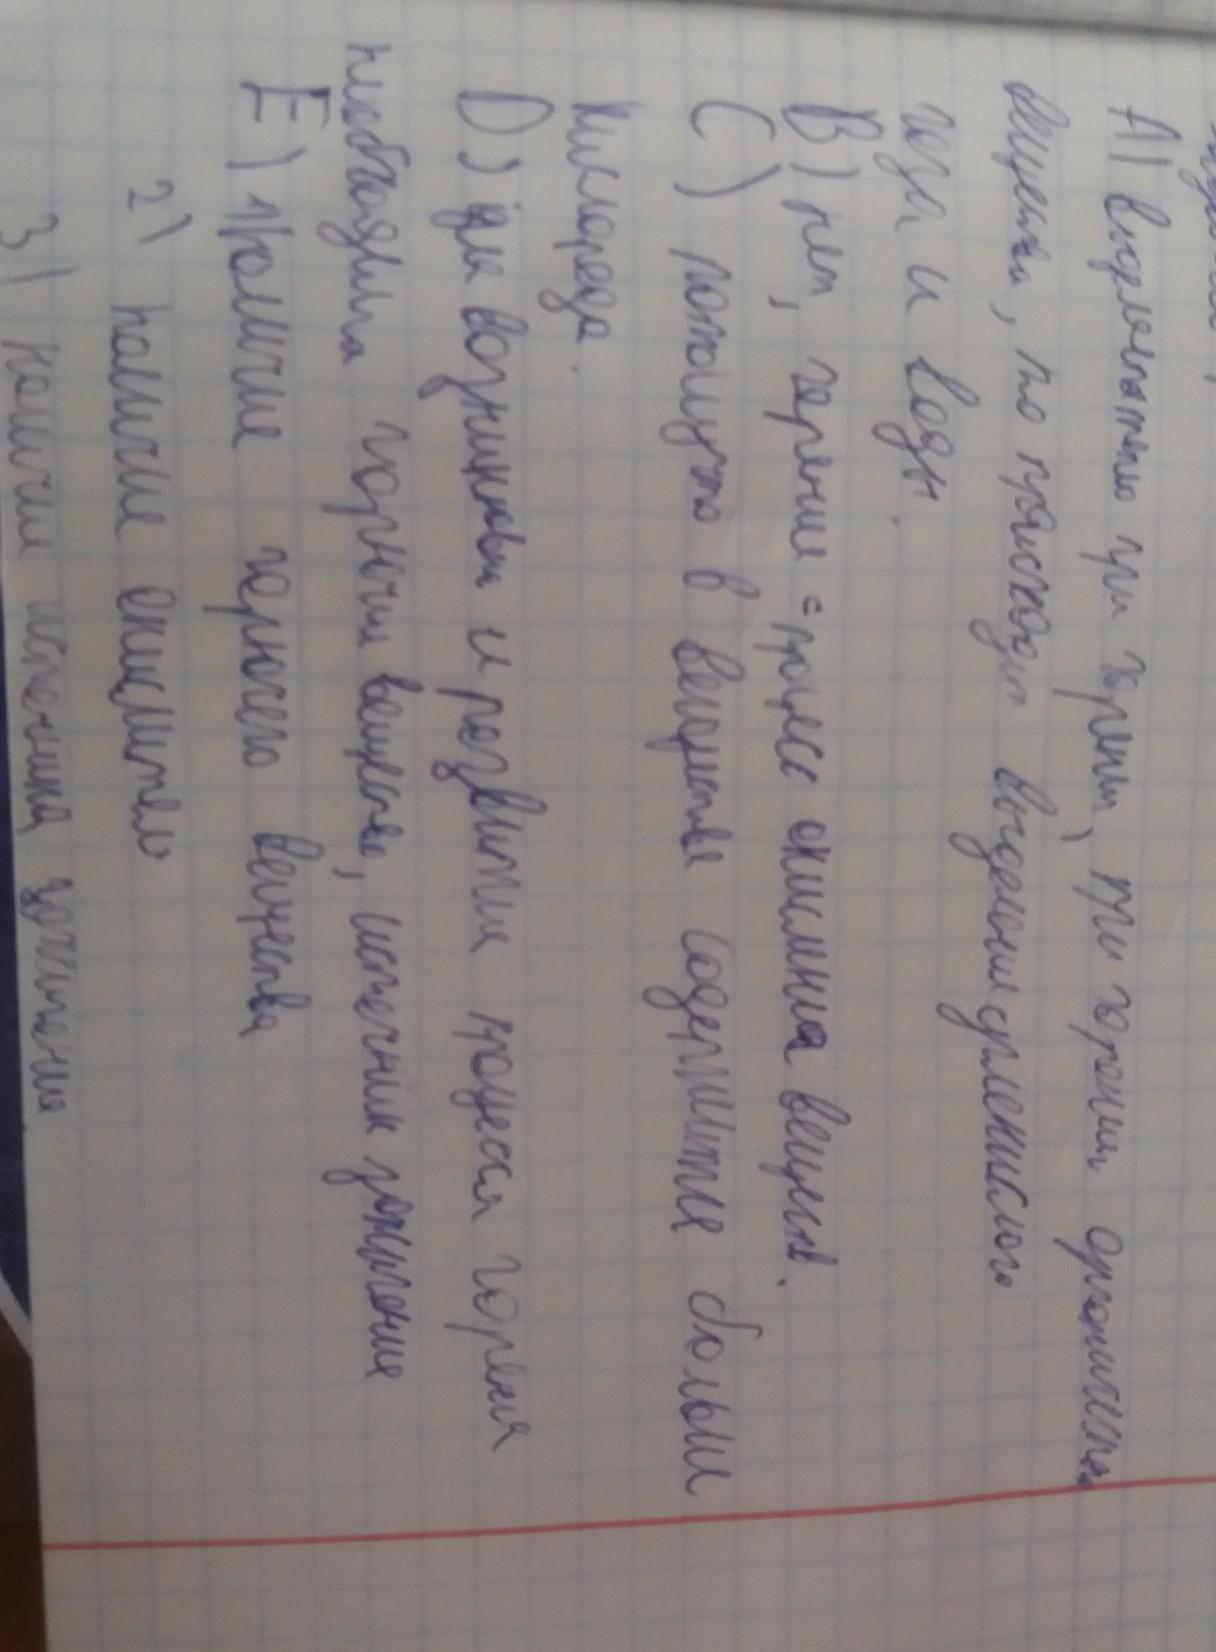 A) выделяются при горении, при горении органических
веществ, то происходит выделении углекислого
газа и воды.
B) нет, горение = процесс окисления веществ.
C) потому что в веществе содержится больше
кислорода.
D) для возникновен и развитие процесса горения
необходима горючии вещества, источник зажигание
E) 1) наличие горючего вещества
2) наличие окислитель
3) наличие источника зажигания